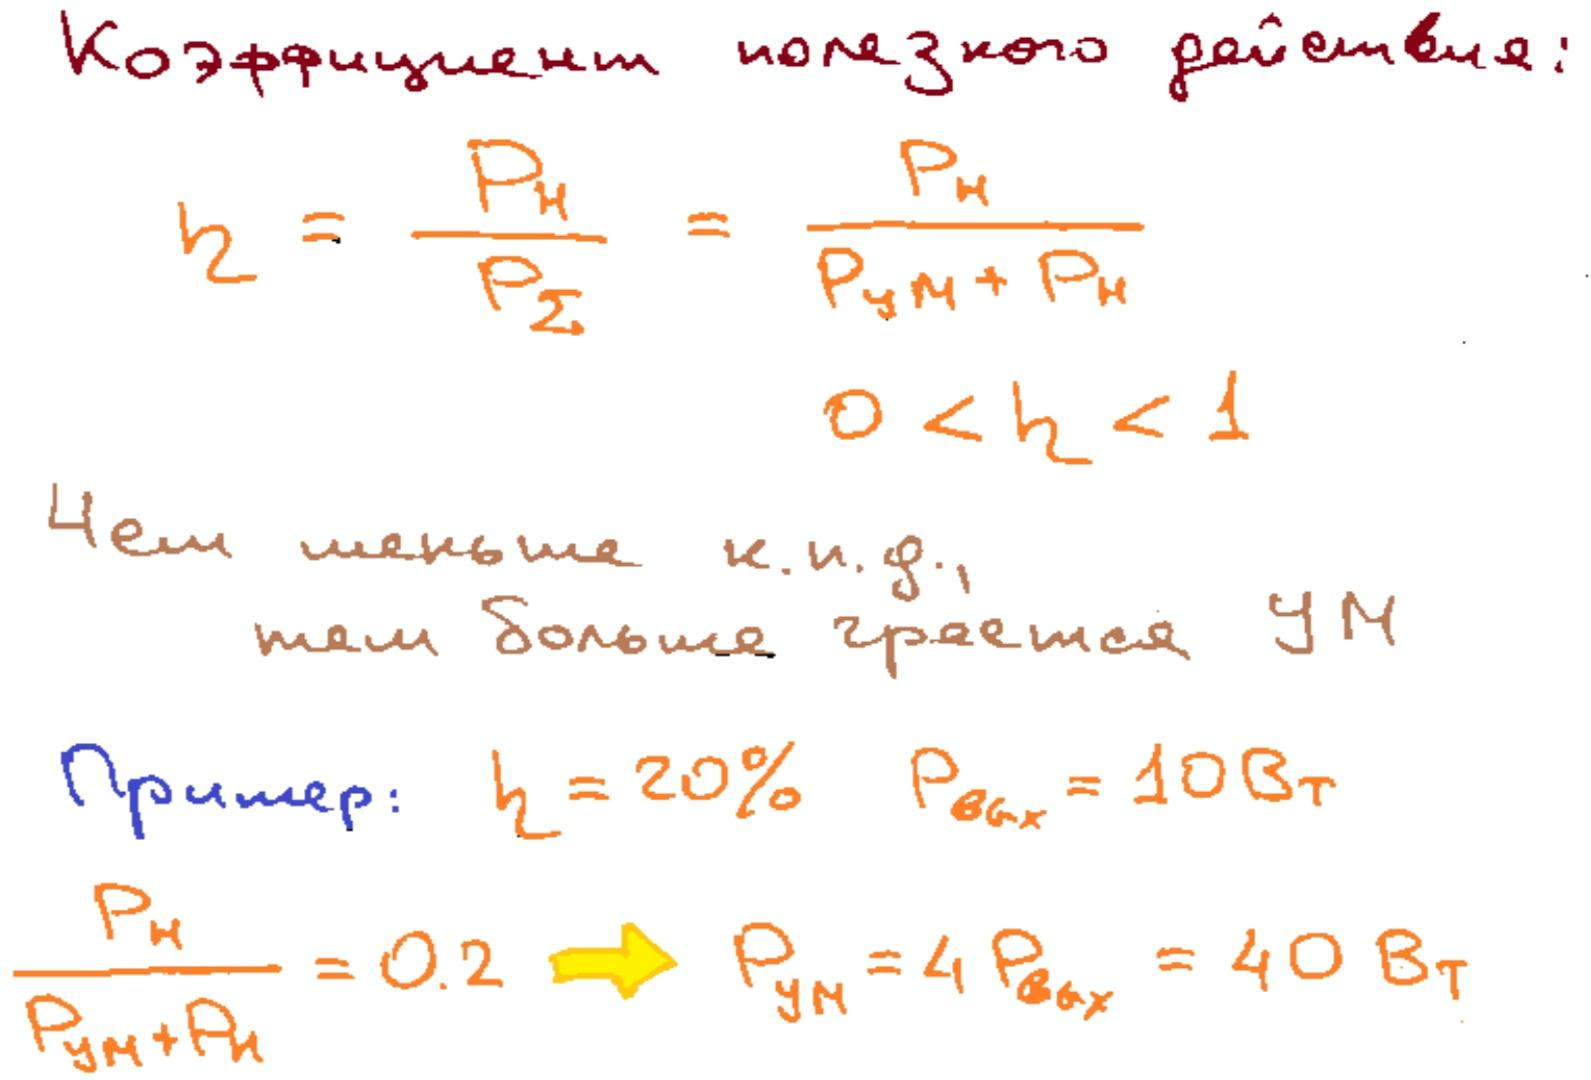 Коэффициент полезного действия:
η = Pн / PΣ = Pн / (Pум + Pн)
0 < η < 1
Чем меньше к.п.д.,
тем больше греется УМ
Пример: η = 20% Pвых = 10 Вт
Pн / (Pум + Pн) = 0.2 ➡ Pум = 4 Pвых = 40 Вт